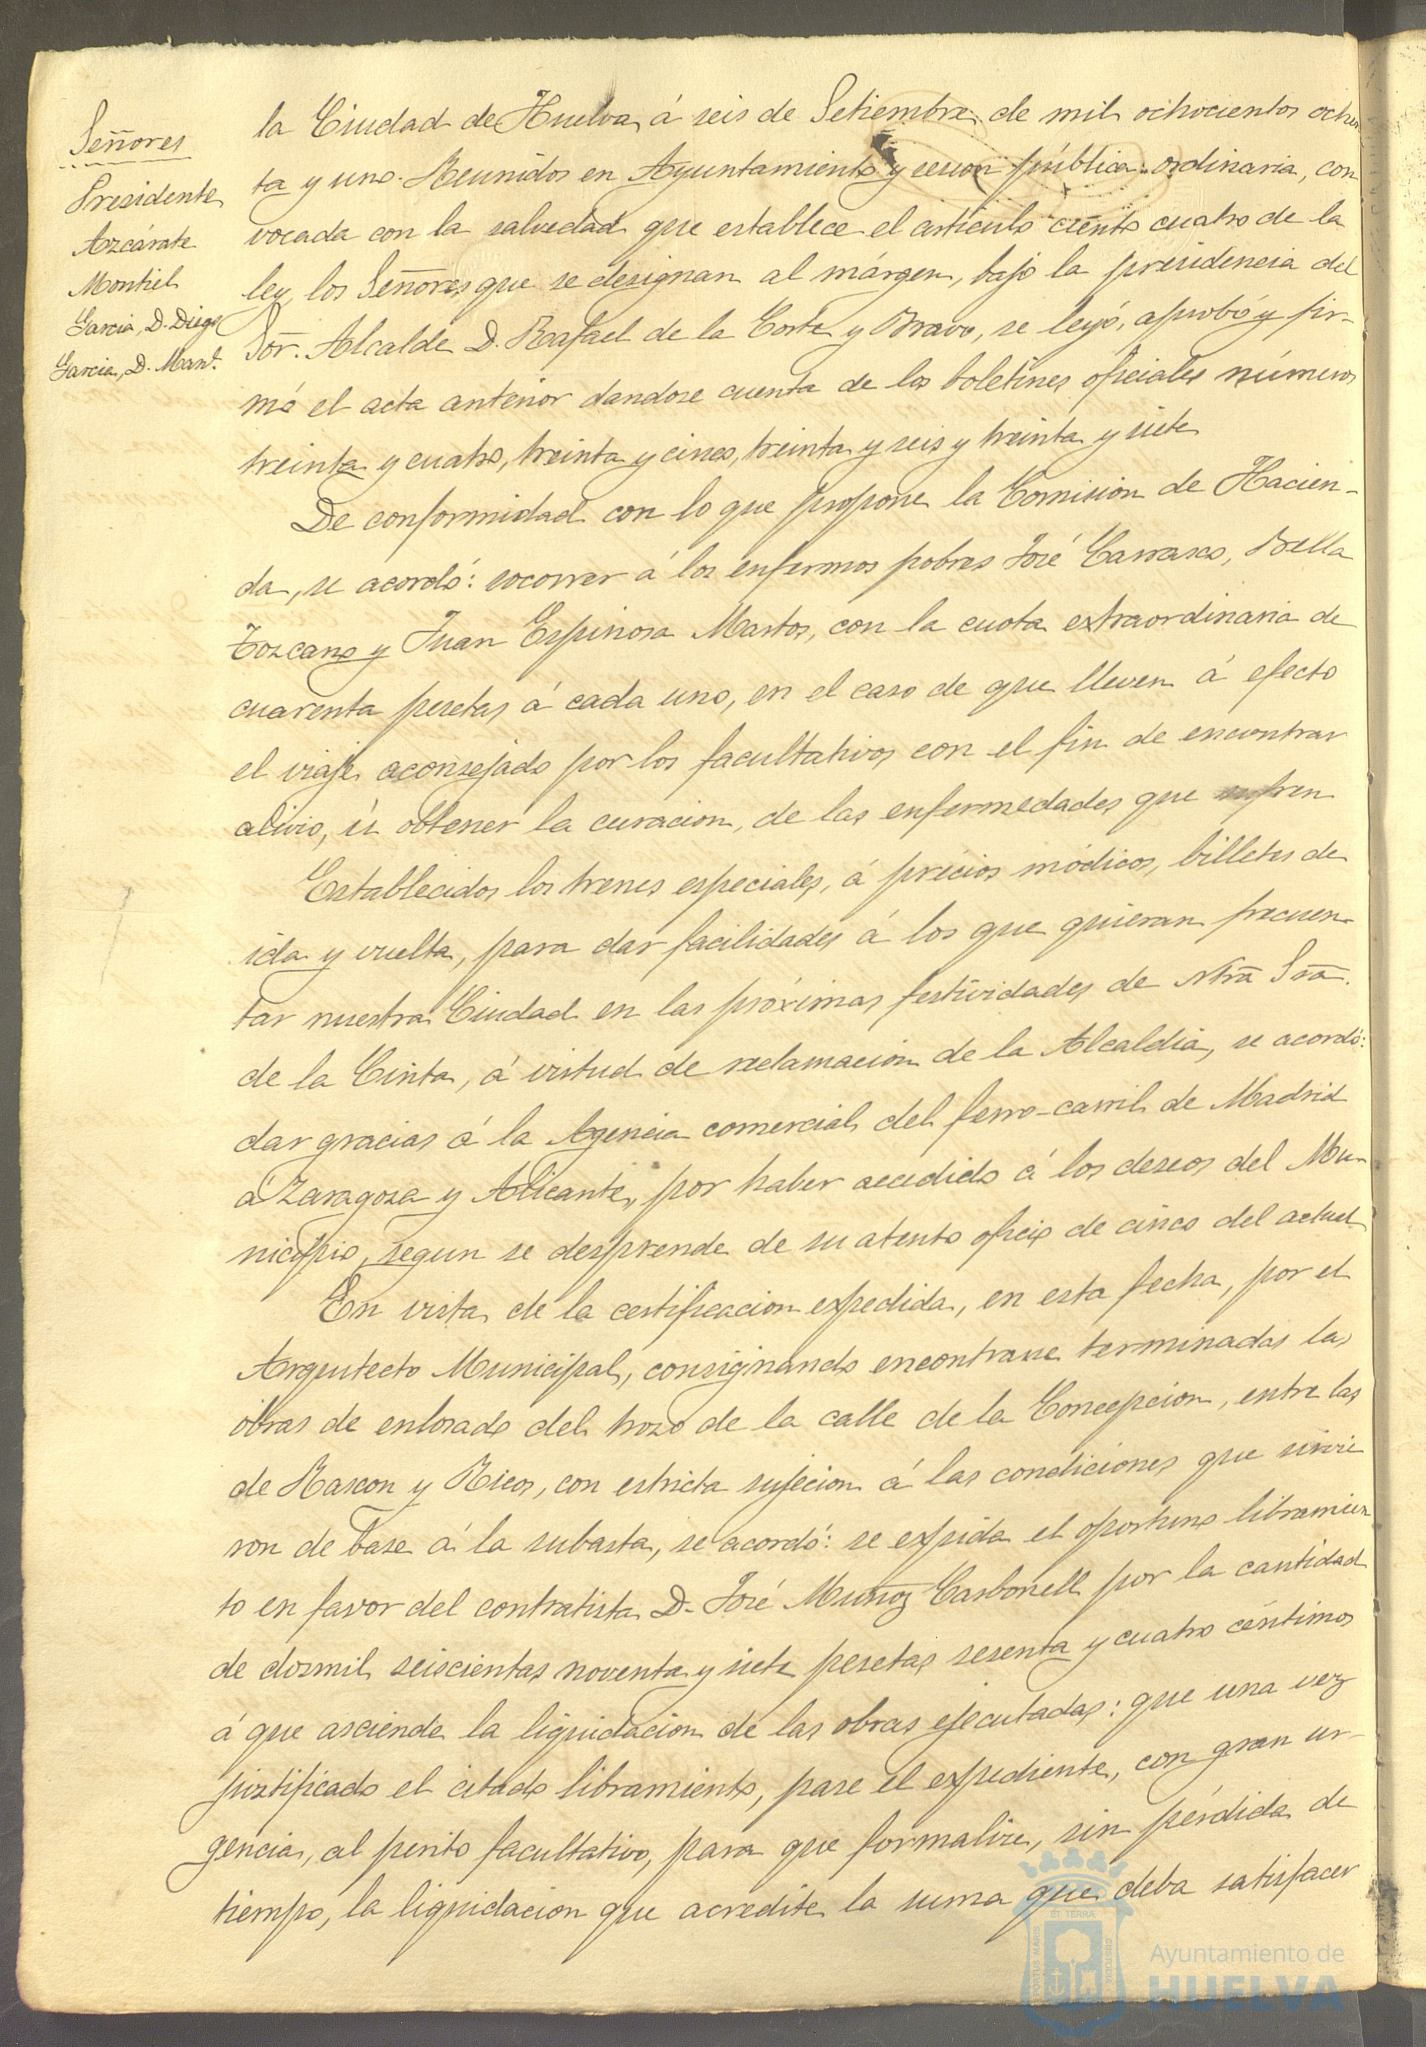 Señores
Presidente
Azcárate
Montiel
Garcia, D. Diego
Garcia, D. Man.l
la Ciudad de Huelva á seis de Setiembre de mil ochocientos ochen
ta y uno. Reunidos en Ayuntamiento y sesion pública ordinaria, con
vocada con la salvedad que establece el artículo ciento cuatro de la
ley, los Señores que se designan al márgen, bajo la presidencia del
Sor. Alcalde D. Rafael de la Corte y Bravo, se leyó, aprobó y fir-
mó el acta anterior dandose cuenta de los boletines oficiales números
treinta y cuatro, treinta y cinco, treinta y seis y treinta y siete
De conformidad con lo que propone la Comision de Hacien-
da, se acordó: socorrer á los enfermos pobres José Carrasco, Bella
Tozcano y Juan Espinosa Martos, con la cuota extraordinaria de
cuarenta pesetas á cada uno, en el caso de que lleven á efecto
el viaje aconsejado por los facultativos con el fin de encontrar
alivio, ú obtener la curacion, de las enfermedades que sufren
Establecidos los trenes especiales, á précios módicos, billetes de
ida y vuelta, para dar facilidades á los que quieran frecuen-
tar nuestra Ciudad en las próximas festividades de Ntra Sra.
de la Cinta, á virtud de reclamacion de la Alcaldia, se acordó:
dar gracias á la Agencia comercial del ferro-carril de Madrid
á Zaragoza y Alicante, por haber accedido á los deseos del Mu-
nicipio, segun se desprende de su atento oficio de cinco del actual
En vista de la certificacion expedida, en esta fecha, por el
Arquitecto Municipal, consignando encontrarse terminadas las
obras de enlosado del trozo de la calle de la Concepcion, entre las
de Rascon y Ricos, con estricta sujecion á las condiciones que sirvie
ron de base á la subasta, se acordó: se expida el oportuno libramien
to en favor del contratista D. José Muñoz Carbonell por la cantidad
de dosmil seiscientas noventa y siete pesetas sesenta y cuatro céntimos
á que asciende la liquidacion de las obras ejecutadas: que una vez
justificado el citado libramiento, pase el expediente, con gran ur-
gencia, al perito facultativo, para que formalize, sin pérdida de
tiempo, la liquidacion que acredite la suma que deba satisfacer
Ayuntamiento de
HUELVA